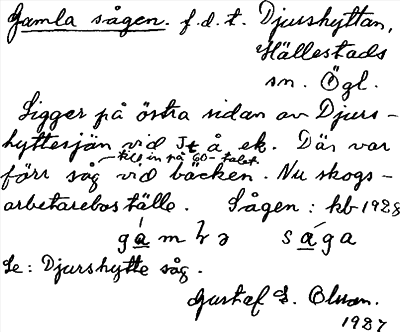 Gamla sågen. f.d.t. Djurshyttan,
Hällestads
sn. Ögl.
Ligger på östra sidan av Djurs-
hyttesjön vid Jt å ek. Där var
till in på 60-talet
förr såg vid bäcken. Nu skogs-
arbetareboställe. Sågen: kb 1928
gamla såga
Se: Djurshytte såg.
Gustaf E. Olsson.
1927